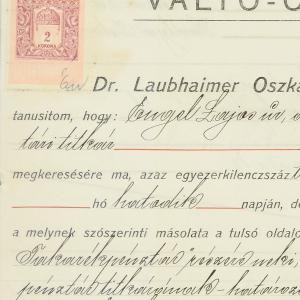 VÁLTÓ-Ó
2
KORONA
Én Dr. Laubhaimer Oszká
tanusitom, hogy: Engel Lajos úr, a
titkár
megkeresésére ma, azaz egyezerkilenczszáz
hó hatodik napján, dé
a melynek szószerinti másolata a tulsó oldalo
Takarékpénztár részére neki
pénztár titkárjának határoz